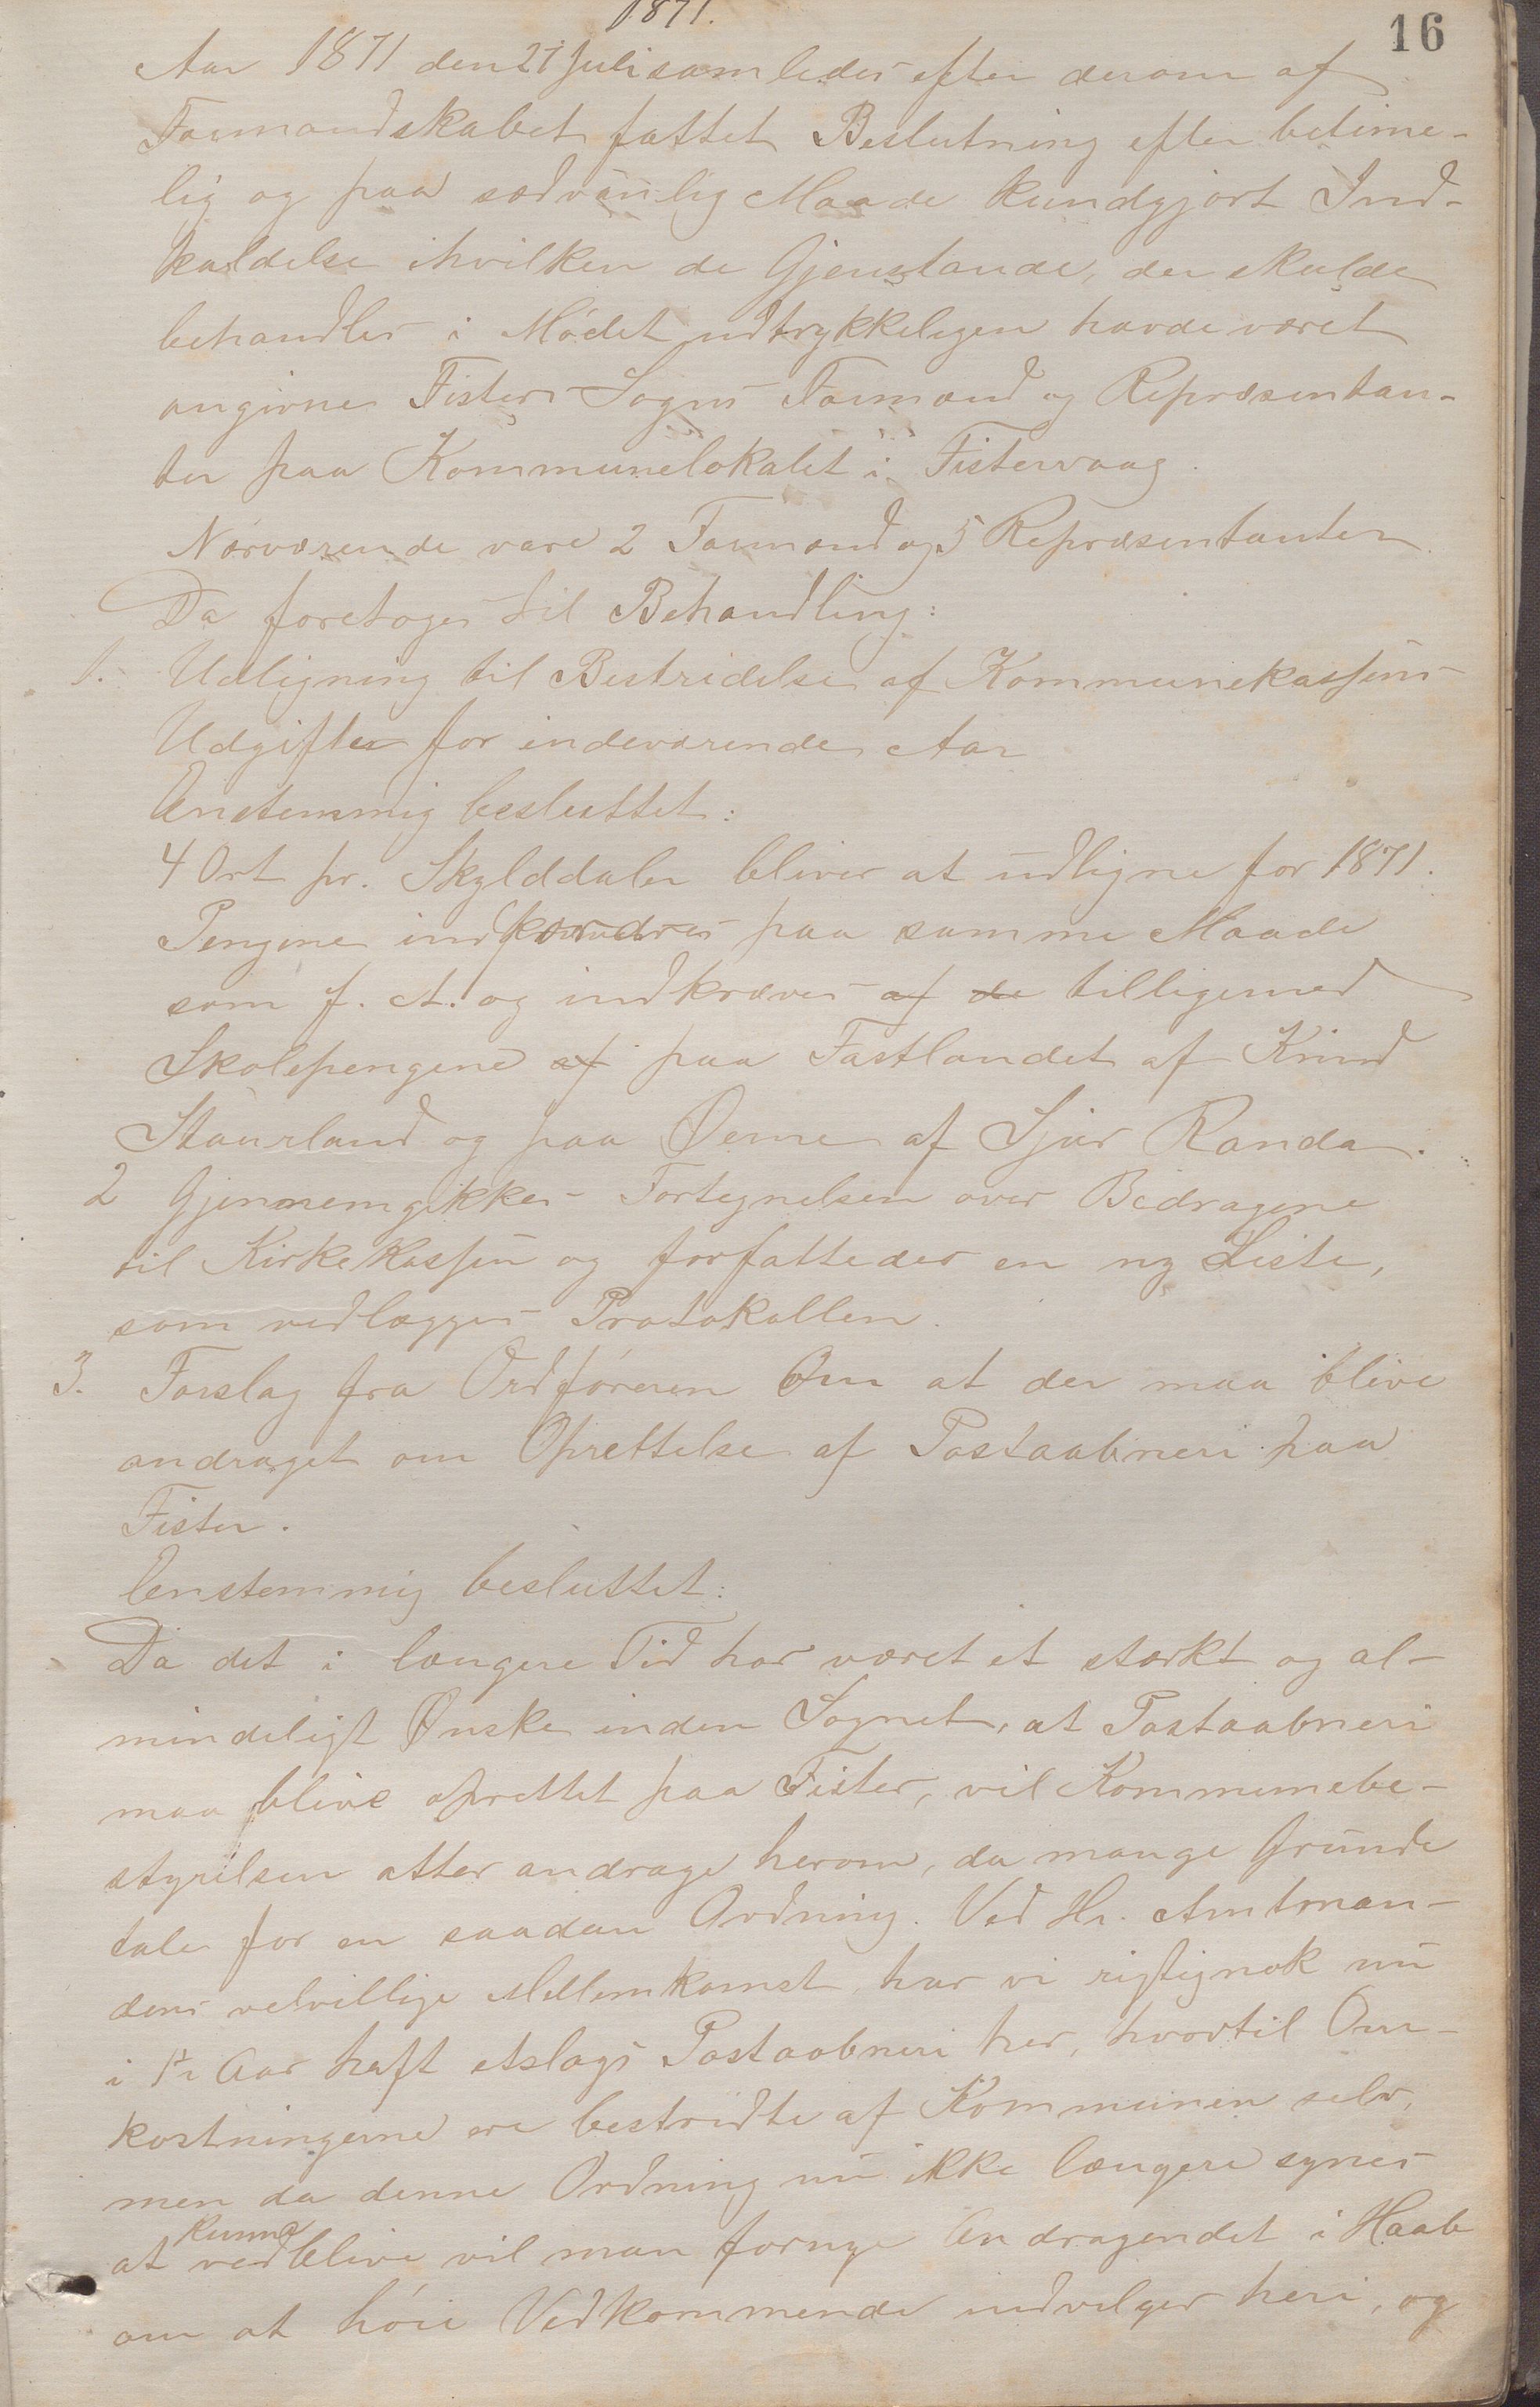 1871.
16
Aar 1871 den 27 Juli samledes efter derom af
Formandskabet fattet Beslutning efter betime-
lig og paa sædvanlig Maade kundgjort Ind-
kaldelse ihvilken de Gjenstande, der skulde
behandles i Mødet udtrykkeligen havde været
angivne Fister Sogns Formænd og Repræsentan-
ter paa Kommunelokalet i Fistervaag.
Nærværende vare 2 Formænd og 5 Repræsentanter.
Da foretoges til Behandling:
1. Udligning til Bestridelse af Kommunekassens
Udgifter for indeværende Aar
Enstemmig besluttet:
4 Ort pr. Skylddaler bliver at udligne for 1871.
Pengene indfordres paa samme Maade
som f. A. og indkræves af de tilligemed
Skolepengene af paa Fastlandet af Knud
Staurland og paa Øerne af Sjur Randa.
2 Gjennemgikkes Fortegnelsen over Bidragene
til Kirkekassen og forfattedes en ny Liste,
som vedlægges Protokollen.
3. Forslag fra Ordføreren Om at der maa blive
andraget om Oprettelse af Postaabneri paa
Fister.
Enstemmig besluttet:
Da det i længere Tid har været et stærkt og al-
mindeligt Ønske inden Sognet, at Postaabneri
maa blive oprettet paa Fister, vil Kommunebe-
styrelsen atter andrage herom, da mange Grunde
tale for en saadan Ordning. Ved Hr. Amtman-
dens velvillige Mellemkomst, har vi rigtignok nu
i 1½ Aar haft etslags Postaabneri her, hvortil Om-
kostningerne ere bestridte af Kommunen selv,
men da denne Ordning nu ikke længere synes
at kunne vedblive vil man fornye Andragendet i Haab
om at høie Vedkommende indvilger heri, og